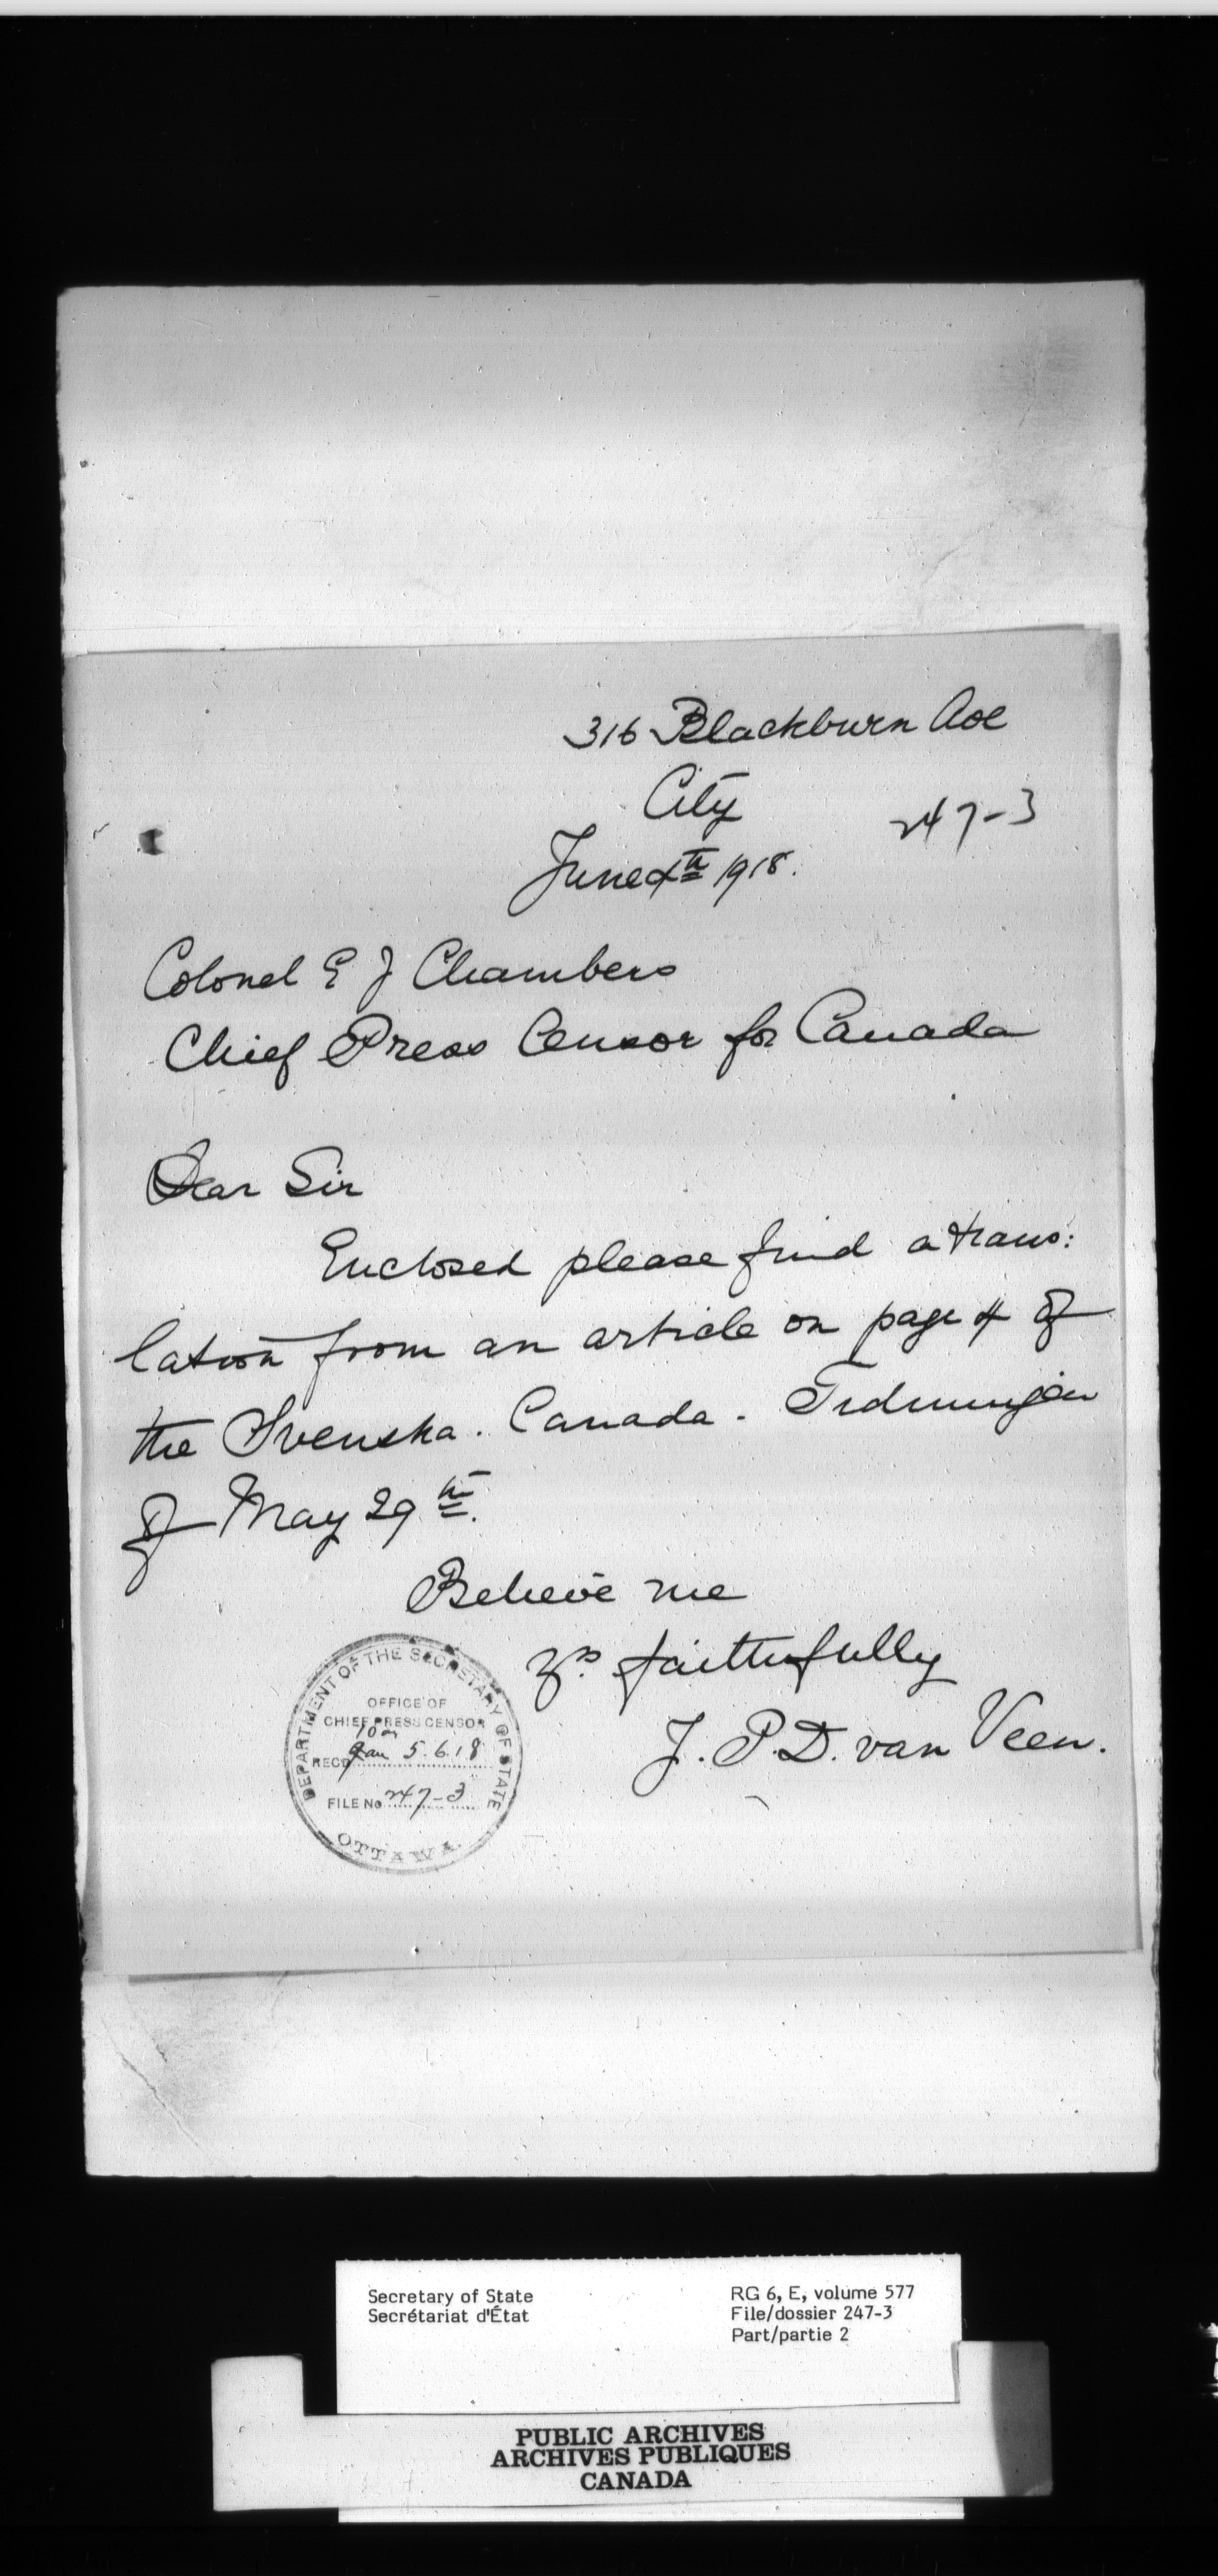 316 Blackburn Ave
City
247-3
June 4th 1918.
Colonel E J Chambers
Chief Press Censor for Canada
Dear Sir
Enclosed please find a trans:
lation from an article on page 4 of
the Svenska. Canada. Tidningen
of May 29th.
Believe me
Yrs. faithfully
J. P. D. van Veen.
DEPARTMENT OF THE SECRETARY OF STATE
OFFICE OF
CHIEF PRESS CENSOR
RECD 5.6.18
FILE No 247-3
OTTAWA.
Secretary of State
Secrétariat d'État
RG 6, E, volume 577
File/dossier 247-3
Part/partie 2
PUBLIC ARCHIVES
ARCHIVES PUBLIQUES
CANADA